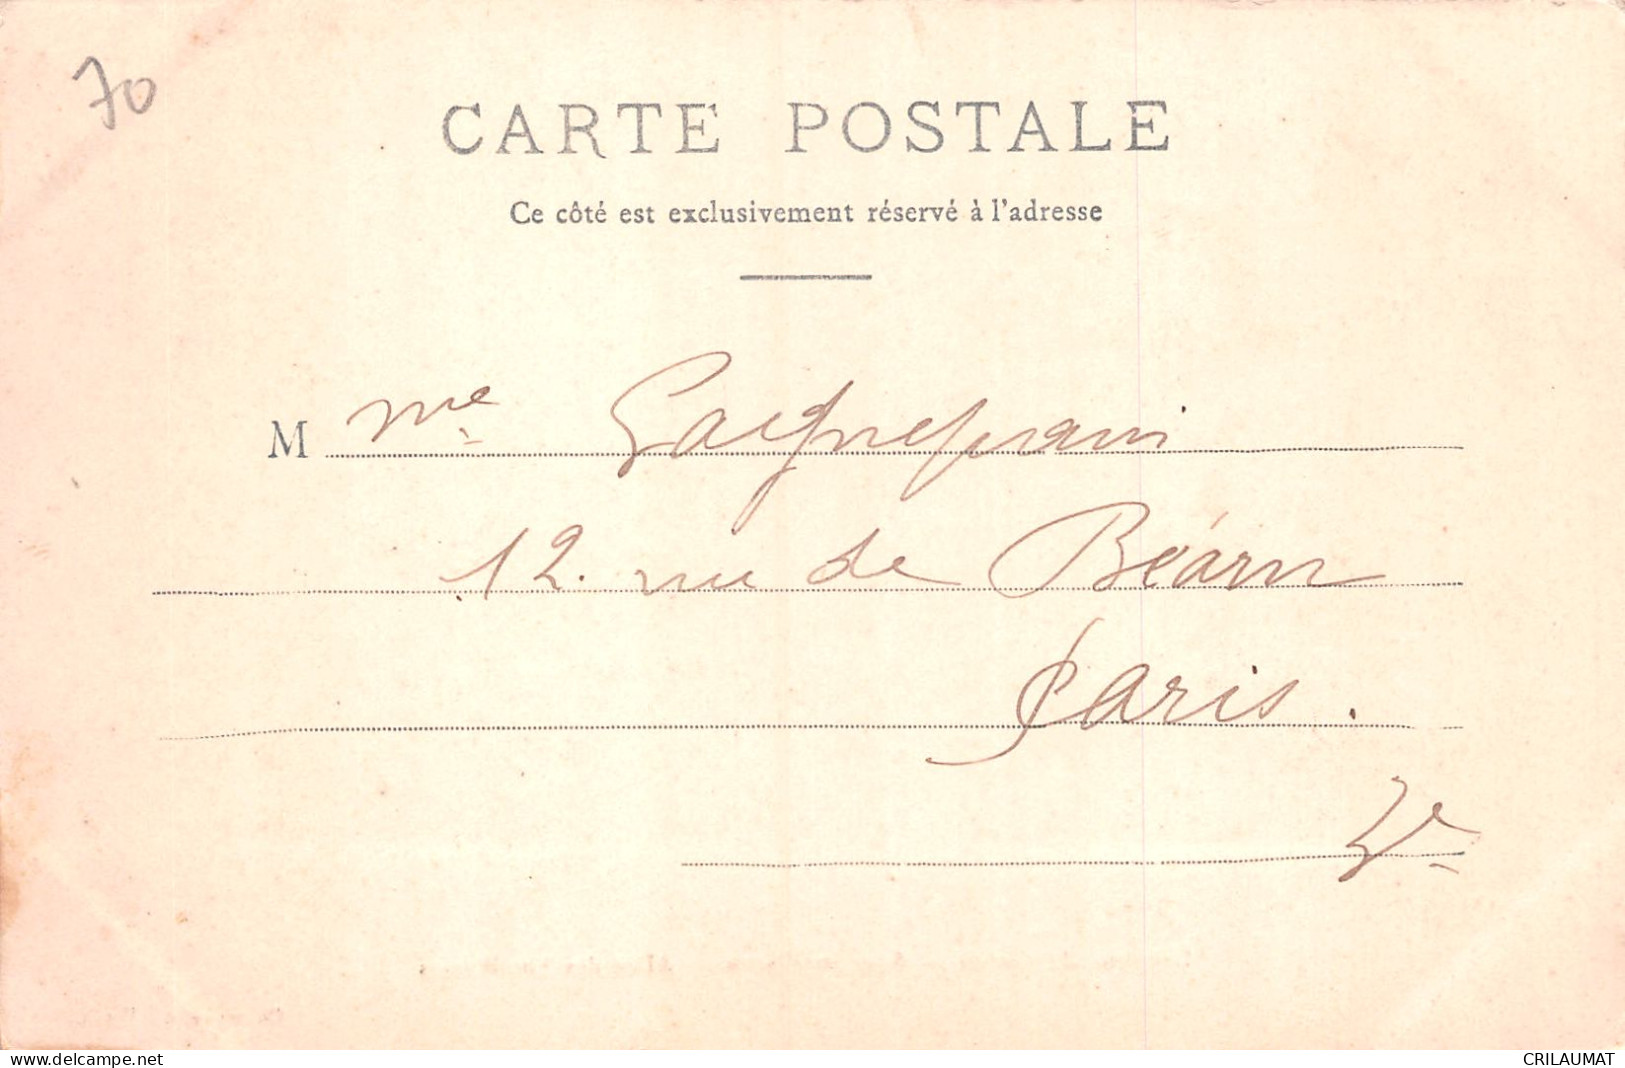 70
CARTE POSTALE
Ce côté est exclusivement réservé à l'adresse
M me Gaignepain
12. rue de Béarn
Paris.
3e
www.delcampe.net
CRILAUMAT